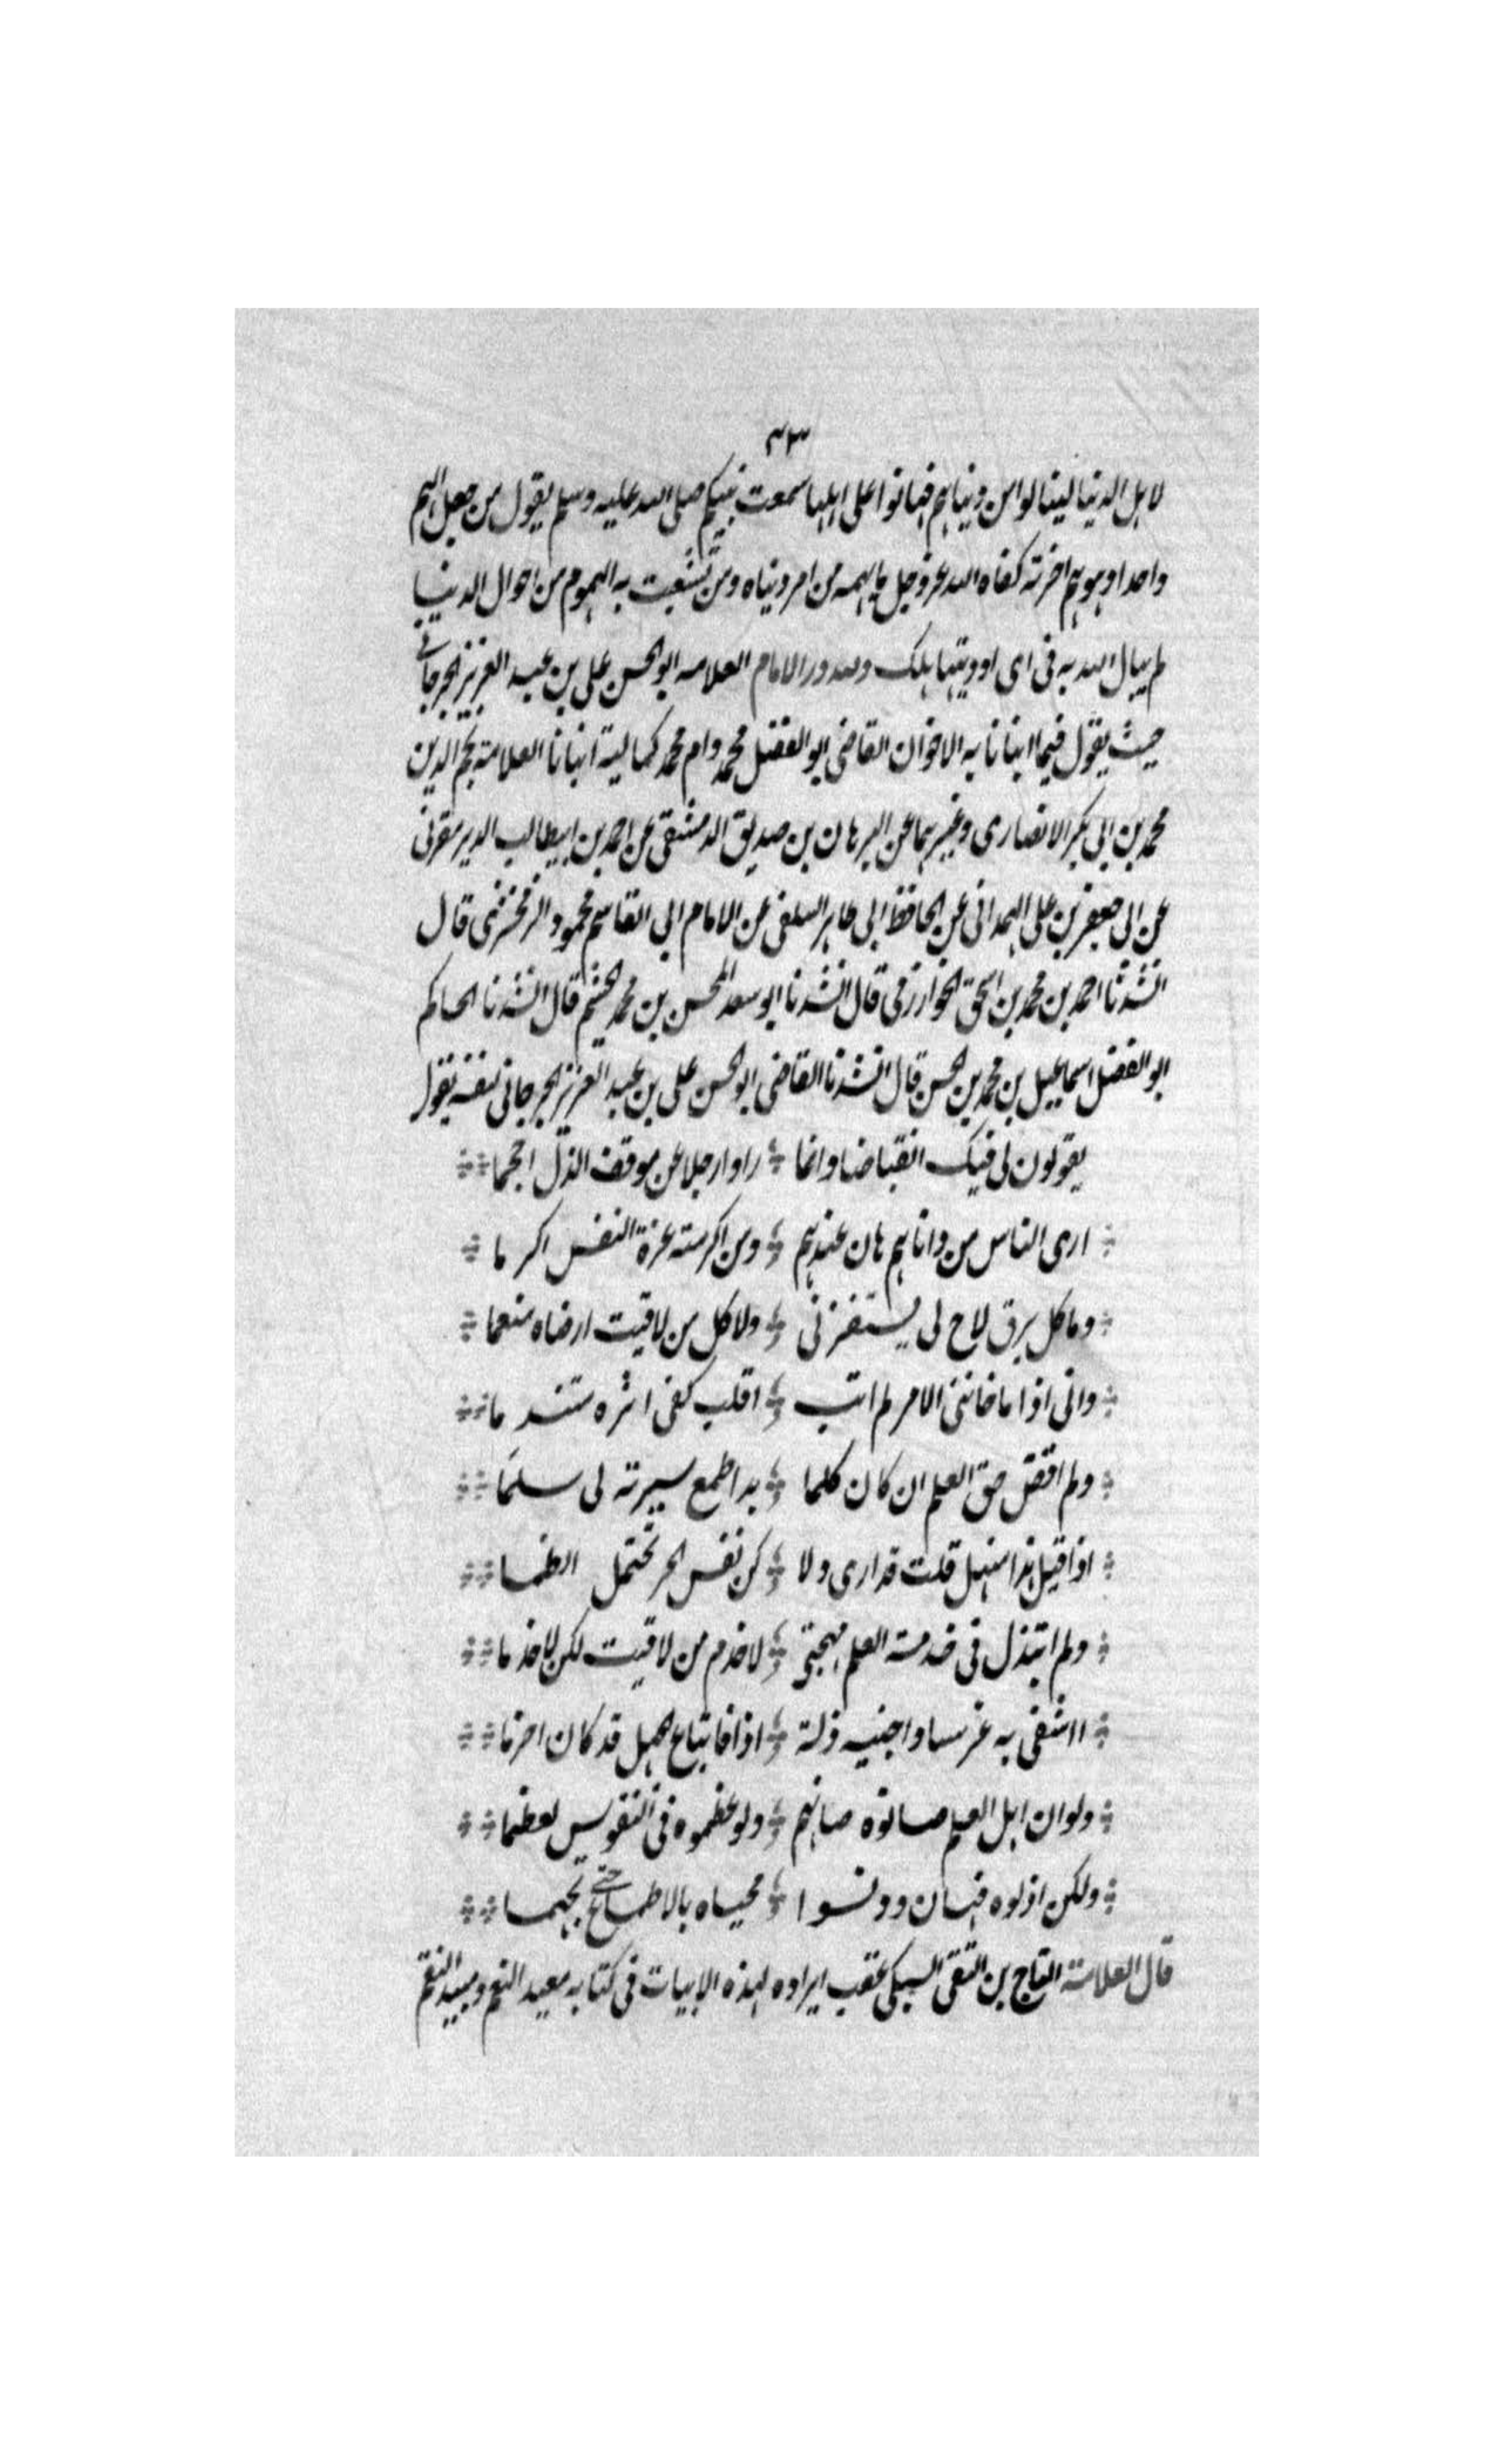 ٣٣
لاهل الدنيا لينالوا من دنياهم فهانوا على اهلها سمعت نبيكم صلى الله عليه وسلم يقول من جعل الهم
واحدا وهو هم اخرته كفاه الله عز وجل ما اهمه من امر دنياه ومن تشعبت به الهموم من احوال الدنيا
لم يبال الله به في اى اوديتها هلك ولله در الامام العلامه ابو الحسن على بن عبد العزيز الجرجانى
حيث يقول فيما انبانا به الاخوان القاضى ابو الفضل محمد وام محمد كمالية انبانا العلامة نجم الدين
محمد بن ابى بكر الانصارى وغيرهما عن البرهان بن صديق الدمشقى عن احمد بن ابيطالب الدير مقرنى
عن ابى جعفر بن على الهمدانى عن الحافظ ابى طاهر السلفى عن الامام ابى القاسم محمود الزمخشرى قال
انشدنا احمد بن محمد بن اسحق الخوارزمى قال انشدنا ابو سعد المحسن بن محمد الجشمى قال انشدنا الحاكم
ابو الفضل اسماعيل بن محمد بن الحسن قال انشدنا القاضى ابو الحسن على بن عبد العزيز الجرجانى لنفسه يقول
يقولون لى فيك انقباضا وانما راوا رجلا عن موقف الذل احجما
ارى الناس من داناهم هان عندهم ومن اكرمته عزة النفس اكرما
وما كل برق لاح لى يستفزنى ولا كل من لاقيت ارضاه منعما
وانى اذا ما فاتنى الامر لم ابت اقلب كفى اثره متندما
ولم اقض حق العلم ان كان كلما بدا طمع سيرته لى سلما
اذا قيل هذا منهل قلت قد ارى ولا كن نفس الحر تحتمل الظما
ولم ابتذل فى خدمة العلم مهجتى لاخدم من لاقيت لكن لاخدما
ااشقى به غرسا واجنيه ذلة اذا فابتاع الجهل قد كان احزما
ولو ان اهل العلم صانوه صانهم ولو عظموه فى النفوس لعظما
ولكن اذلوه فهان ودنسوا محياه بالاطماع حتى تجهما
قال العلامة التاج بن التقى السبكى عقب ايراده لهذه الابيات فى كتابه معيد النعم ومبيد النقم